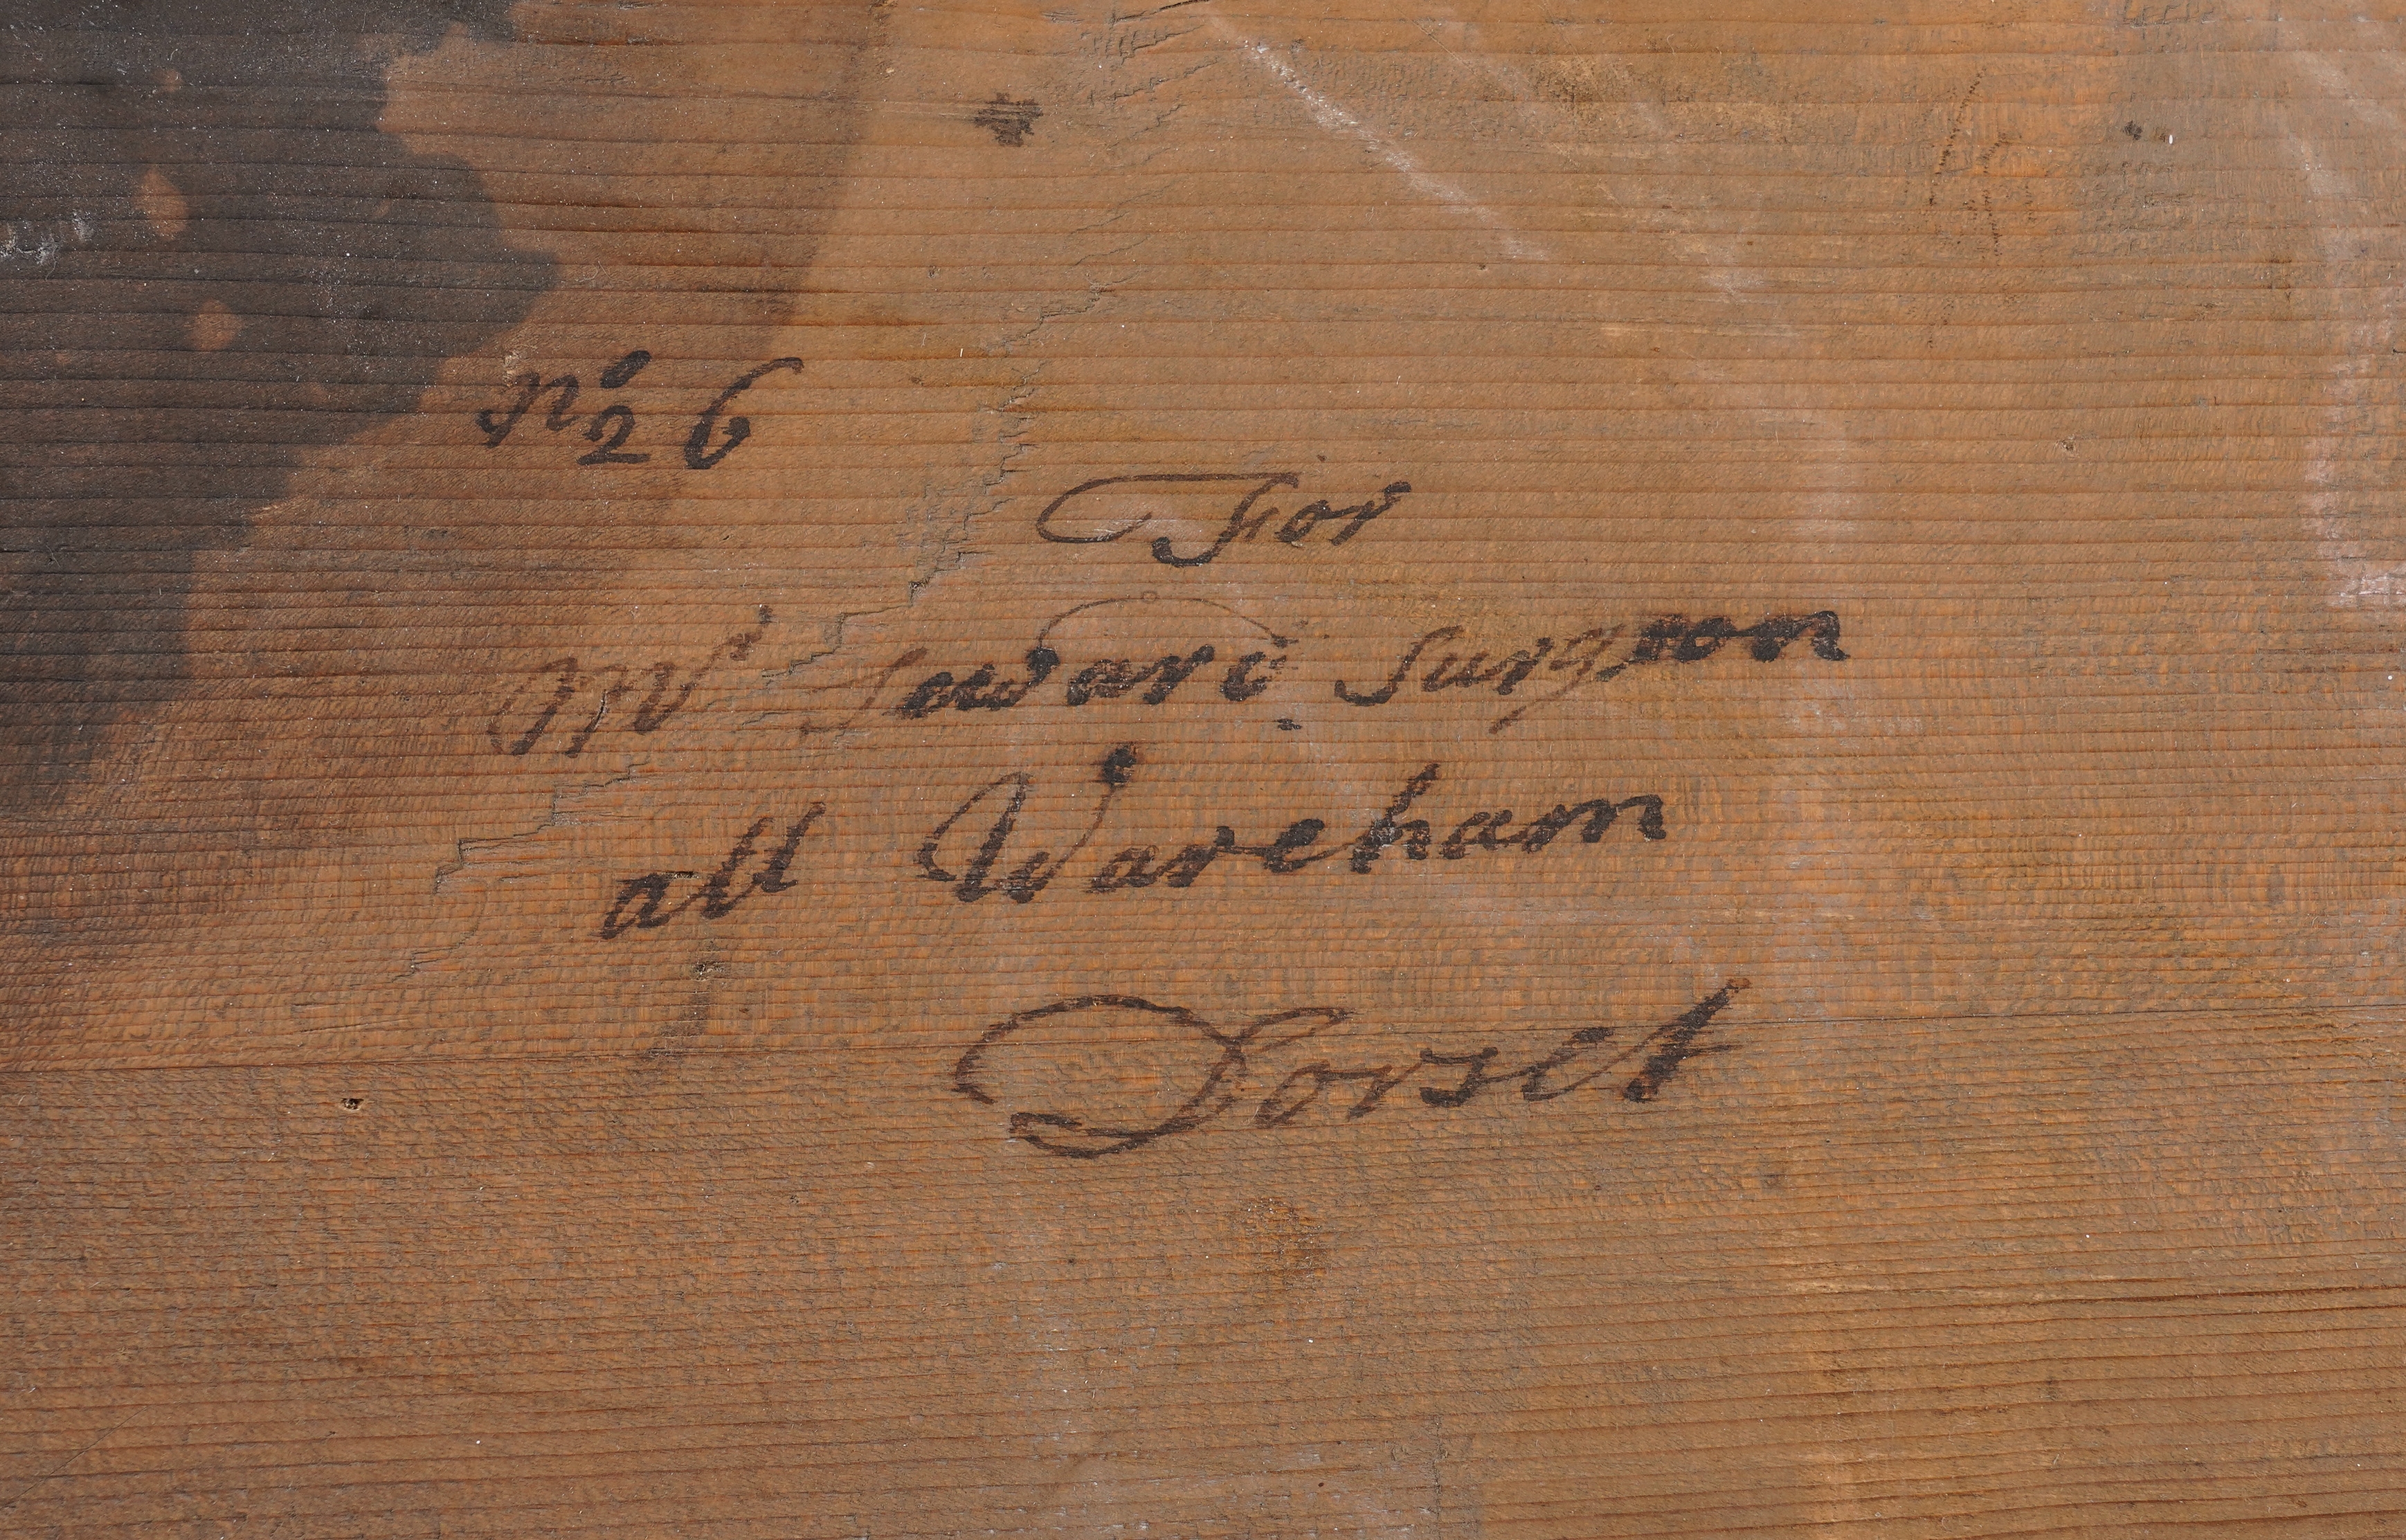 No 26
For
Mr Seward Surgeon
att Wareham
Dorset